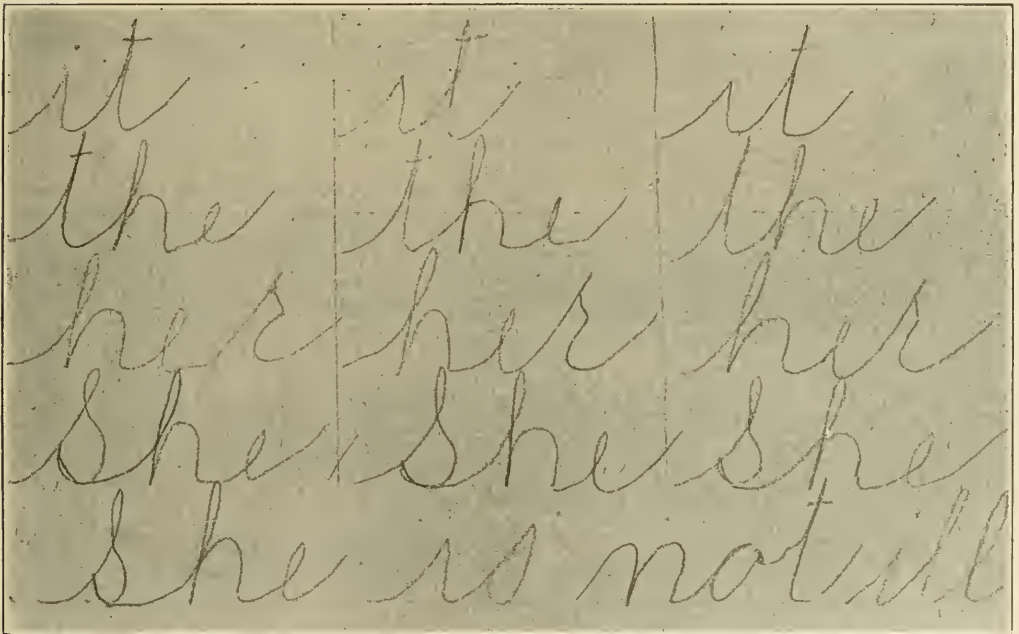 it it it
the the the
her her her
She She She
She is not ill